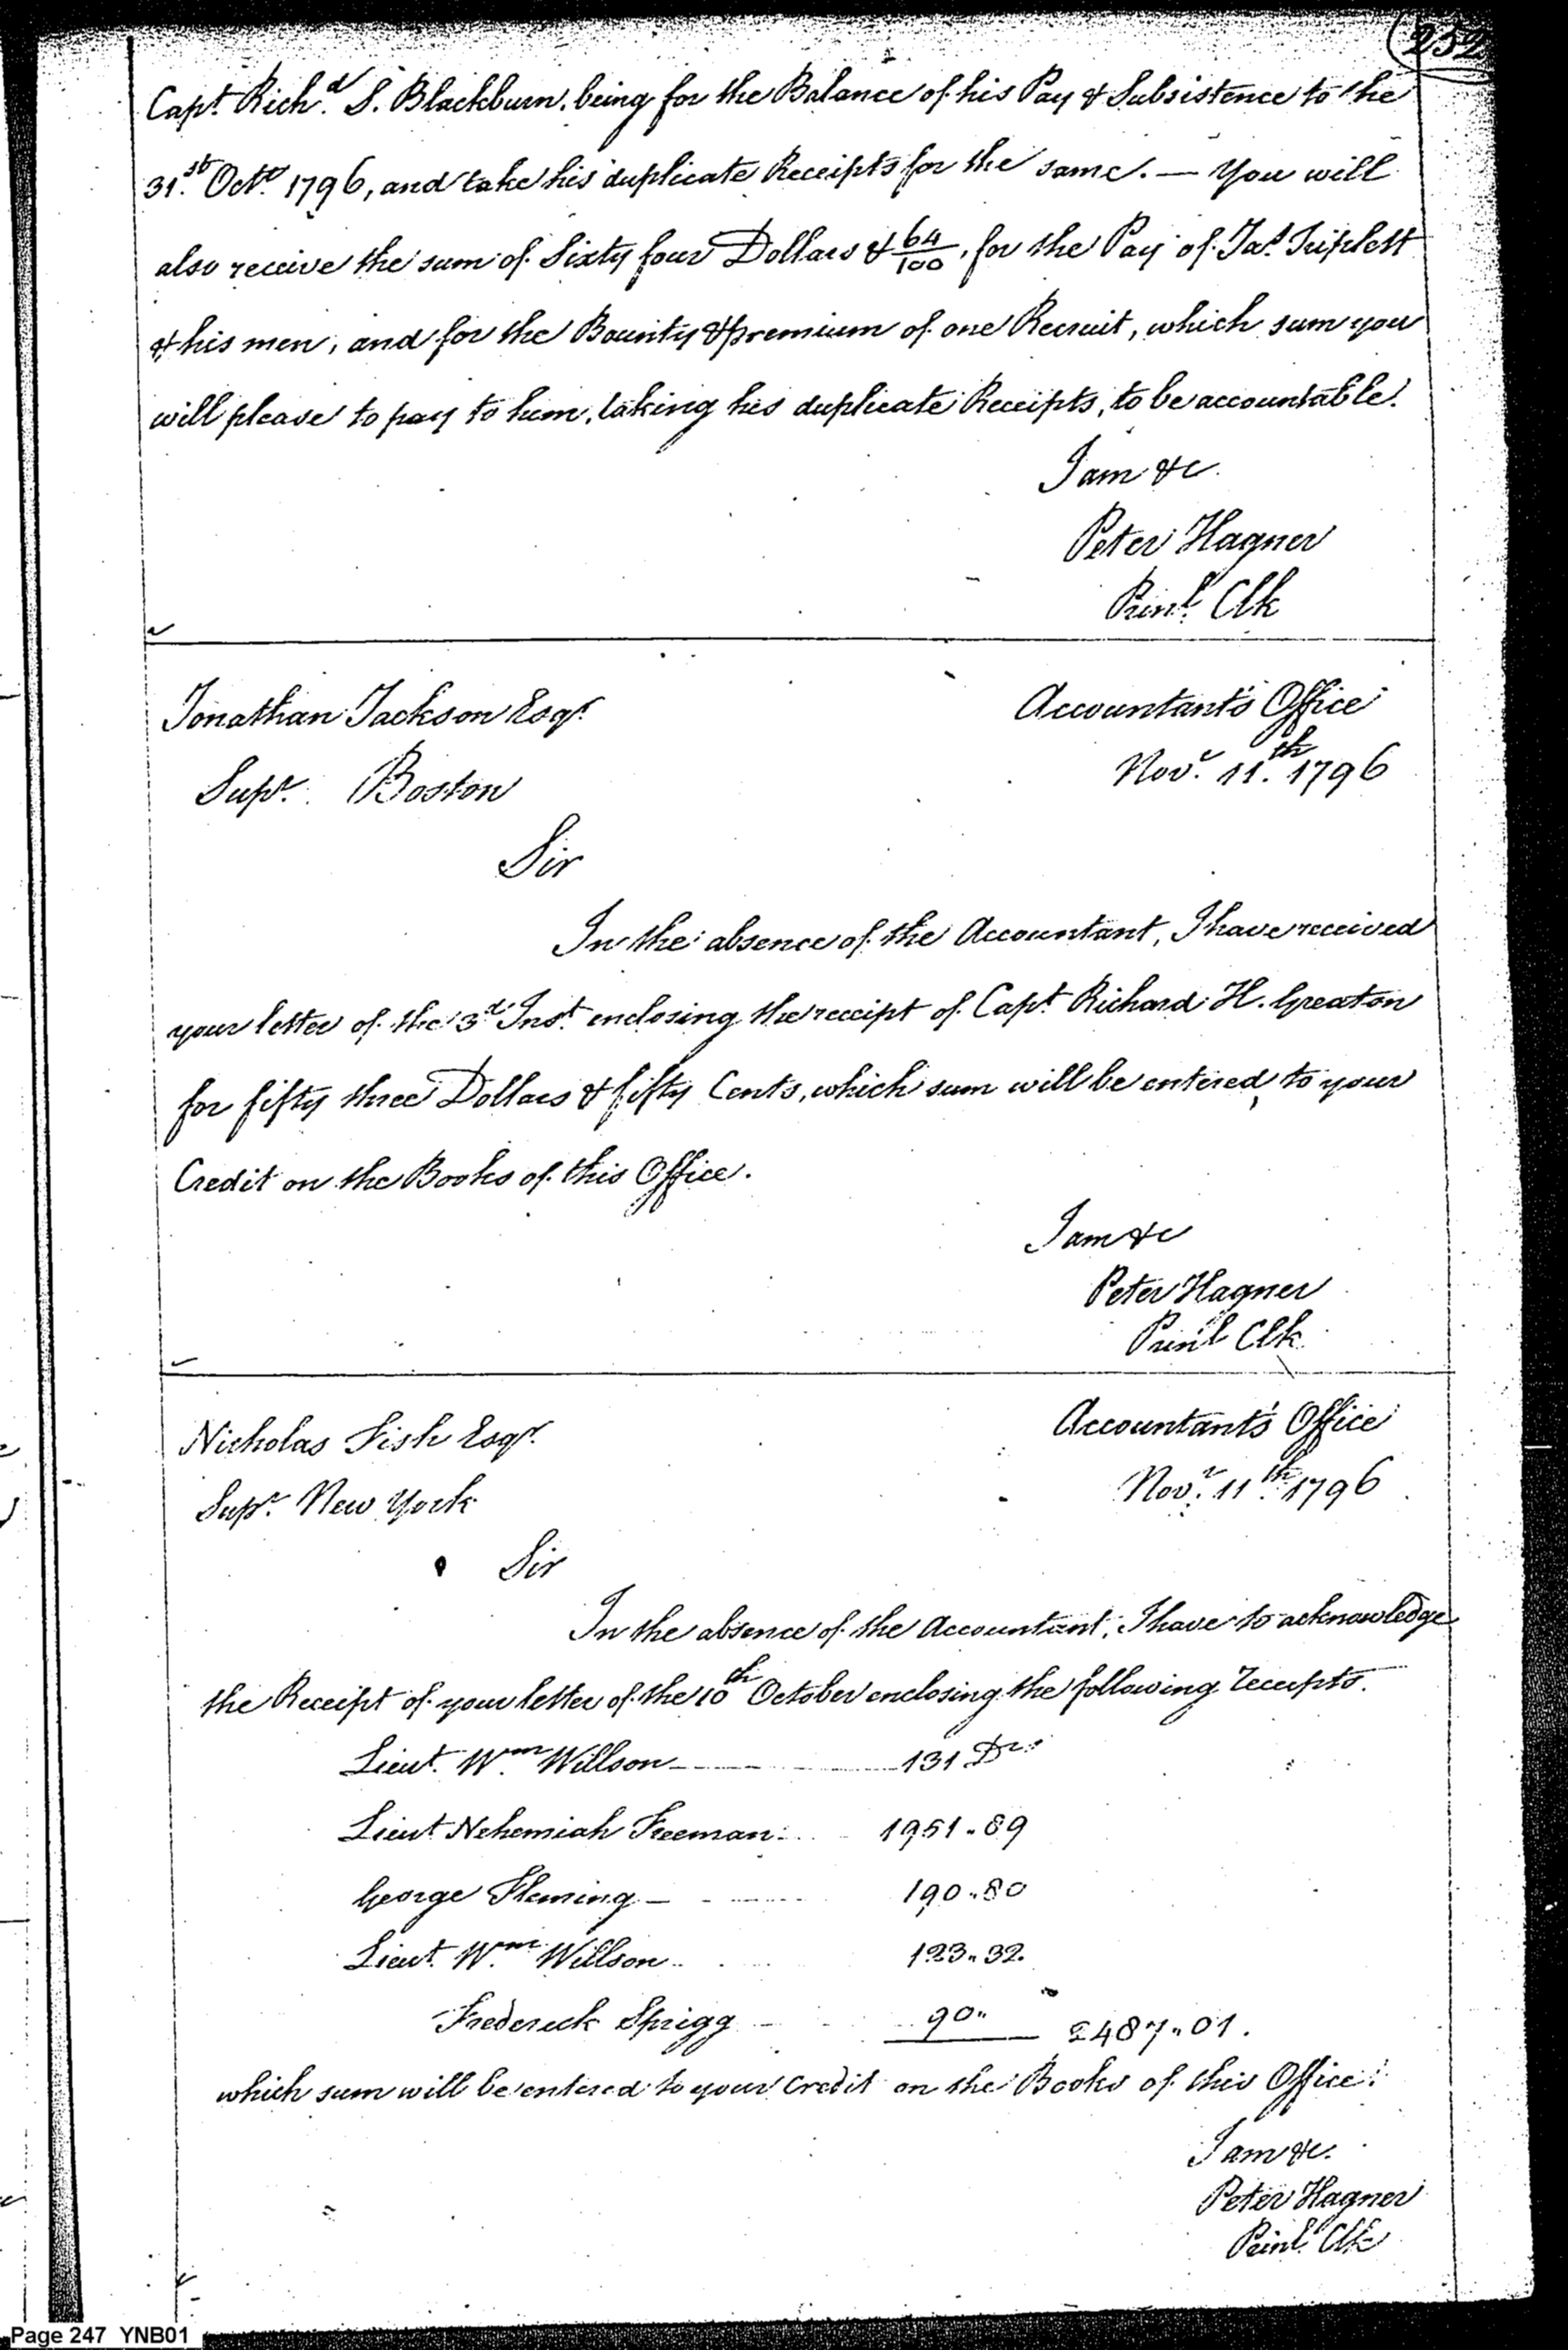 232
Capt. Richd. S. Blackburn, being for the Balance of his Pay & Subsistence to the
31st. Octr. 1796, and take his duplicate Receipts for the same. — You will
also receive the sum of Sixty four Dollars & 64/100, for the Pay of Jas. Triplett
& his men, and for the Bounty & premium of one Recruit, which sum you
will please to pay to him, taking his duplicate Receipts, to be accountable.
I am &c.
Peter Hagner
Prinl. Clk
Jonathan Jackson Esqr.
Accountant's Office
Supr. Boston
Novr. 11th. 1796
Sir
In the absence of the Accountant, I have received
your letter of the 3d Inst. enclosing the receipt of Capt. Richard H. Greaton
for fifty three Dollars & fifty Cents, which sum will be entered to your
Credit on the Books of this Office.
I am &c
Peter Hagner
Prinl Clk
Nicholas Fish Esqr.
Accountant's Office
Supr. New York
Novr. 11th. 1796
Sir
In the absence of the Accountant, I have to acknowledge
the Receipt of your letter of the 10th October enclosing the following receipts.
Lieut. Wm. Willson 131 Drs.
Lieut Nehemiah Freeman 1951.89
George Fleming 190.80
Lieut. Wm. Willson 123.32.
Frederick Sprigg 90" 2487.01.
which sum will be entered to your Credit on the Books of this Office.
I am &c.
Peter Hagner
Prinl. Clk
Page 247 YNB01